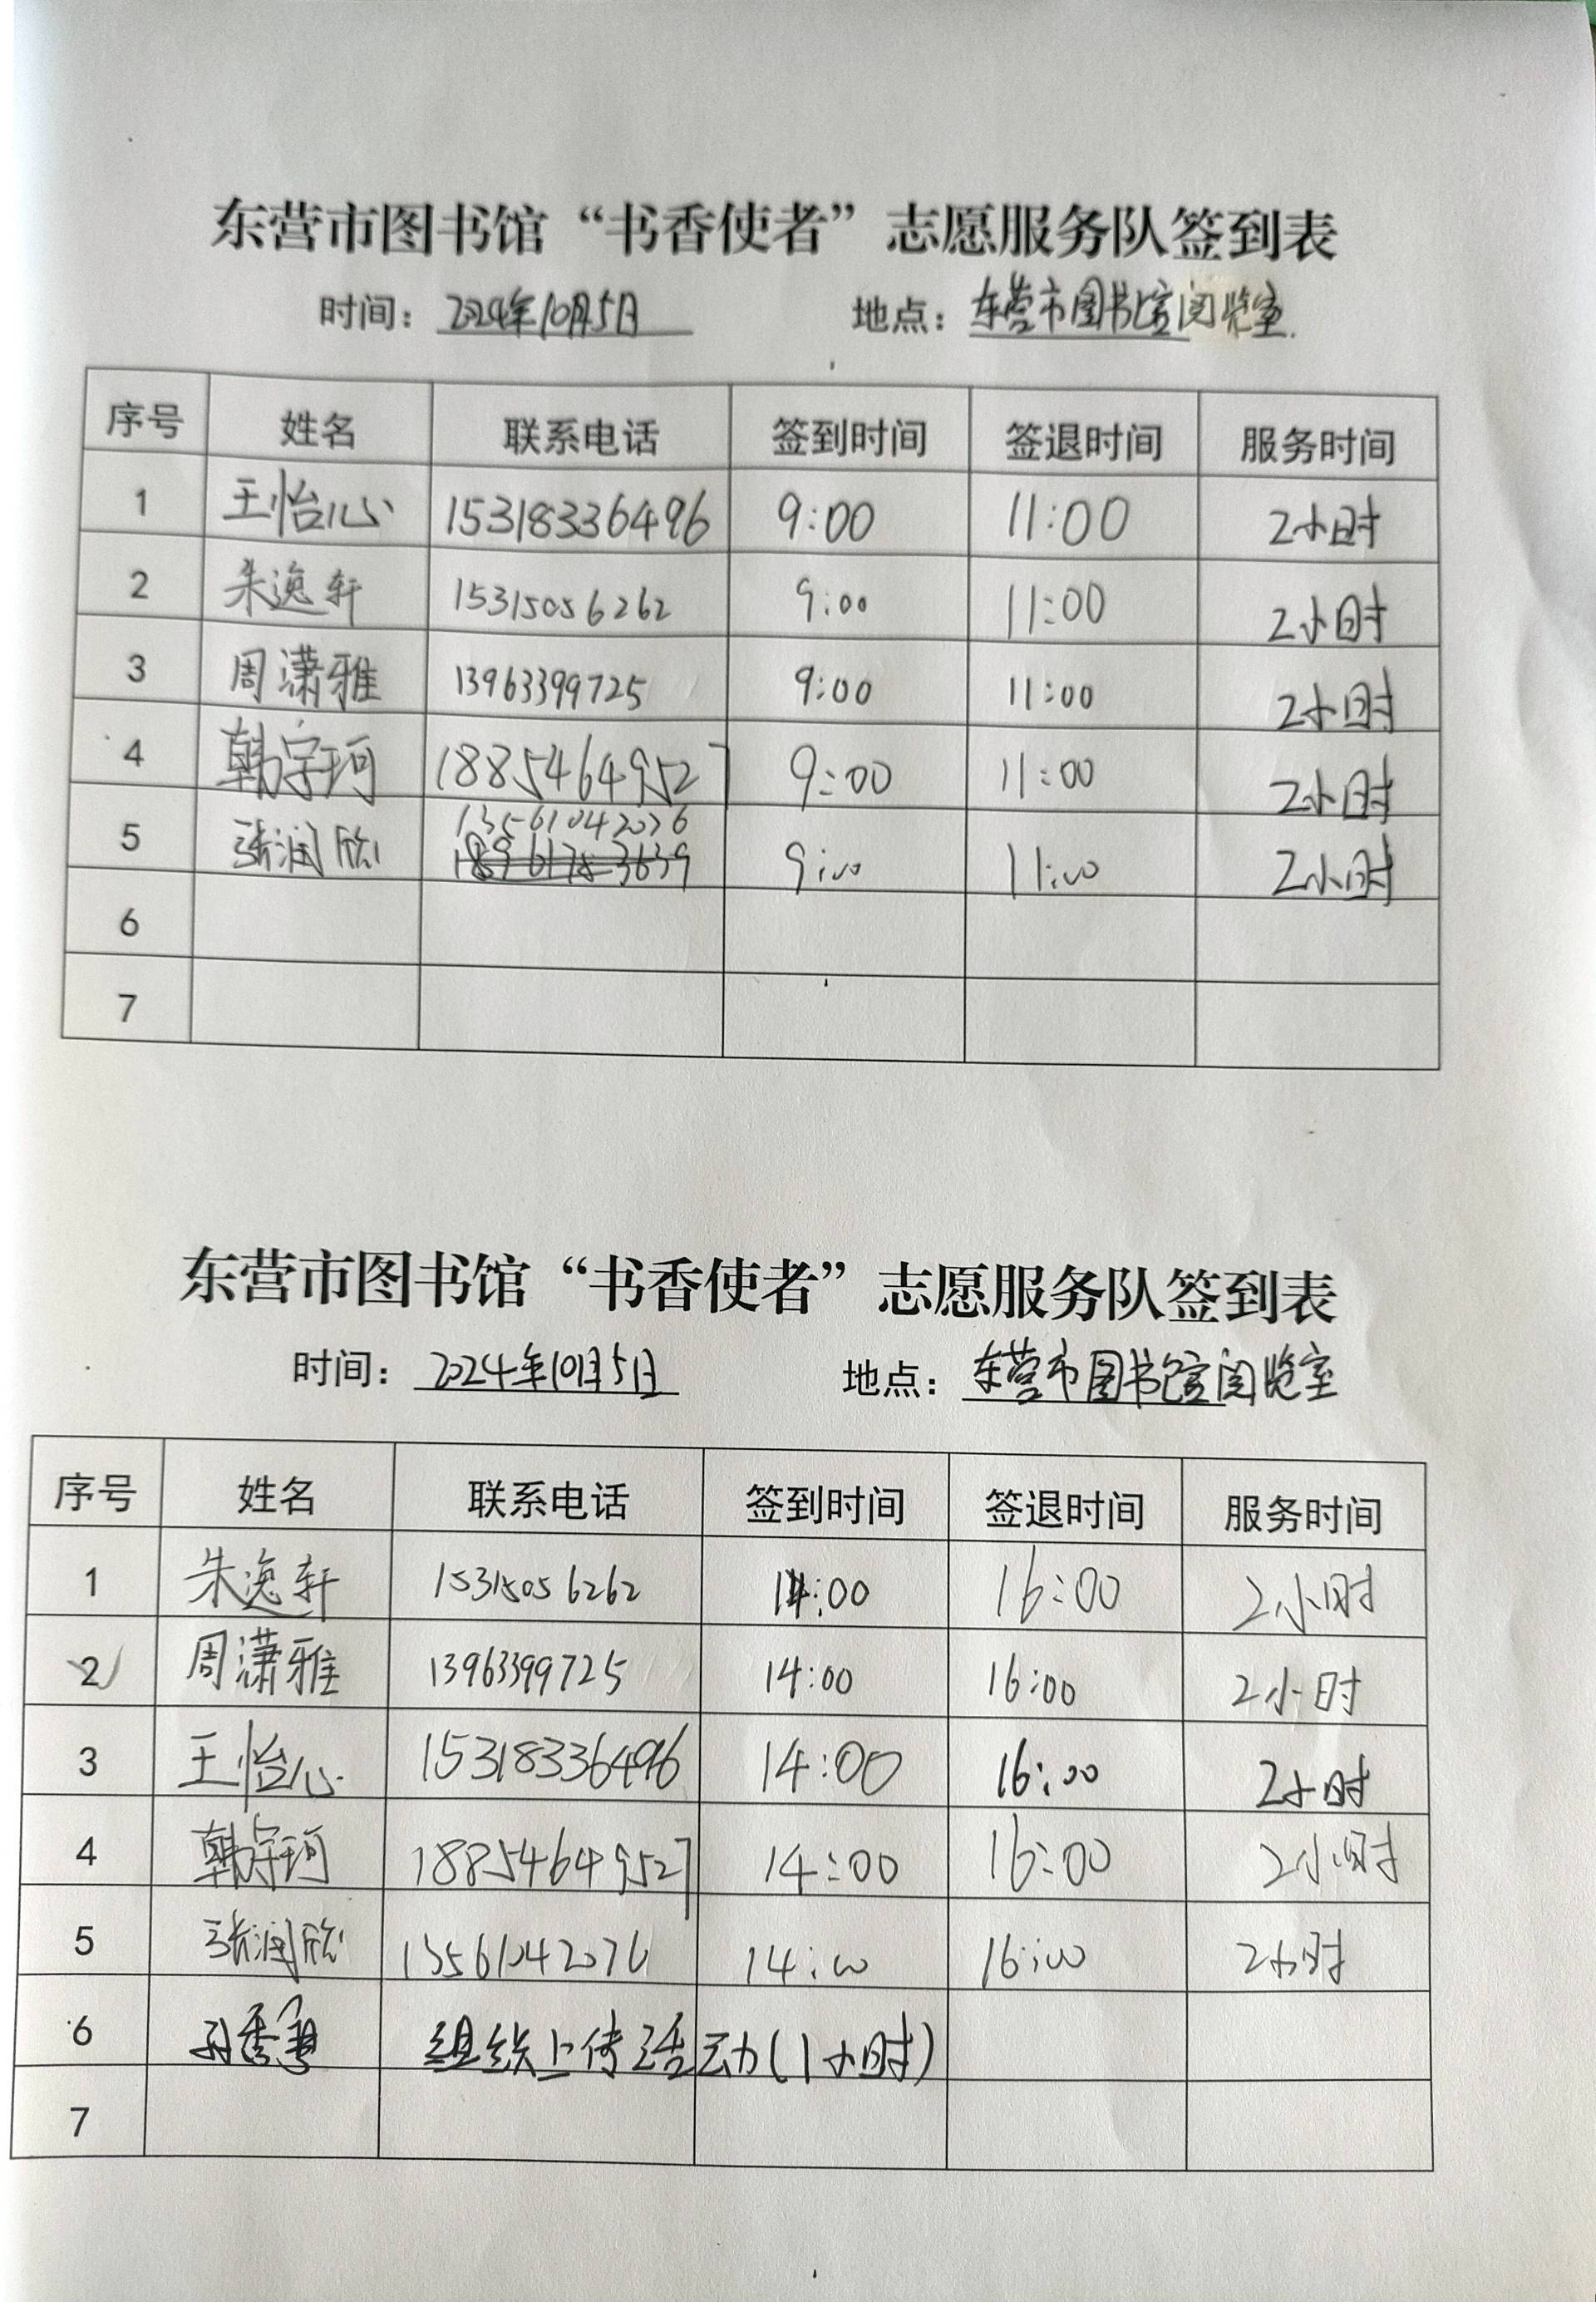 东营市图书馆“书香使者”志愿服务队签到表
时间：2024年10月5日 地点：东营市图书馆阅览室.
序号 姓名 联系电话 签到时间 签退时间 服务时间
1 王怡心 15318336496 9:00 11:00 2小时
2 朱逸轩 15315056262 9:00 11:00 2小时
3 周潇雅 13963399725 9:00 11:00 2小时
4 韩宇珂 18854649527 9:00 11:00 2小时
13561042076
5 张润欣 9:00 11:00 2小时
6
7
东营市图书馆“书香使者”志愿服务队签到表
时间：2024年10月5日 地点：东营市图书馆阅览室
序号 姓名 联系电话 签到时间 签退时间 服务时间
1 朱逸轩 15315056262 14:00 16:00 2小时
2 周潇雅 13963399725 14:00 16:00 2小时
3 王怡心 15318336496 14:00 16:00 2小时
4 韩宇珂 18854649527 14:00 16:00 2小时
5 张润欣 13561042076 14:00 16:00 2小时
6 组织上传活动(1小时)
7